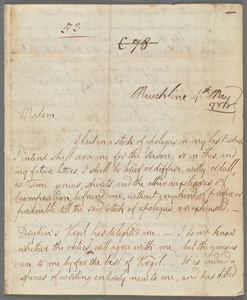 53
Mauchline 4th May
1788
Madam,
stock of apologies in my last
I intend shall serve me for the season; so in this, and
my future letters, I shall be brief or diffuse, witty or dull,
as time, genius, spirits, and the other auxiliaries of
Composition, befriend me, without
the said stock of apologies
Dryden's Virgil has delighted me. I do not know
whether the critics will agree with me, but the Georgics
are to me by far the best of Virgil. It is indeed a
species of writing entirely new to me, and has filled